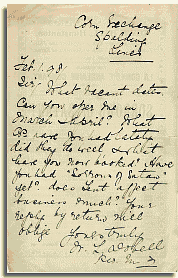 Corn Exchange
Spalding
Lincs
Feb. 28
Sir. What vacant dates
Can you offer me in
March & April? What
have you had lately
did they do well & what
have you now booked? Have
you had "Sorrows of Satan"
yet? does Lent affect
business much? Your
reply by return will
oblige
Yours truly